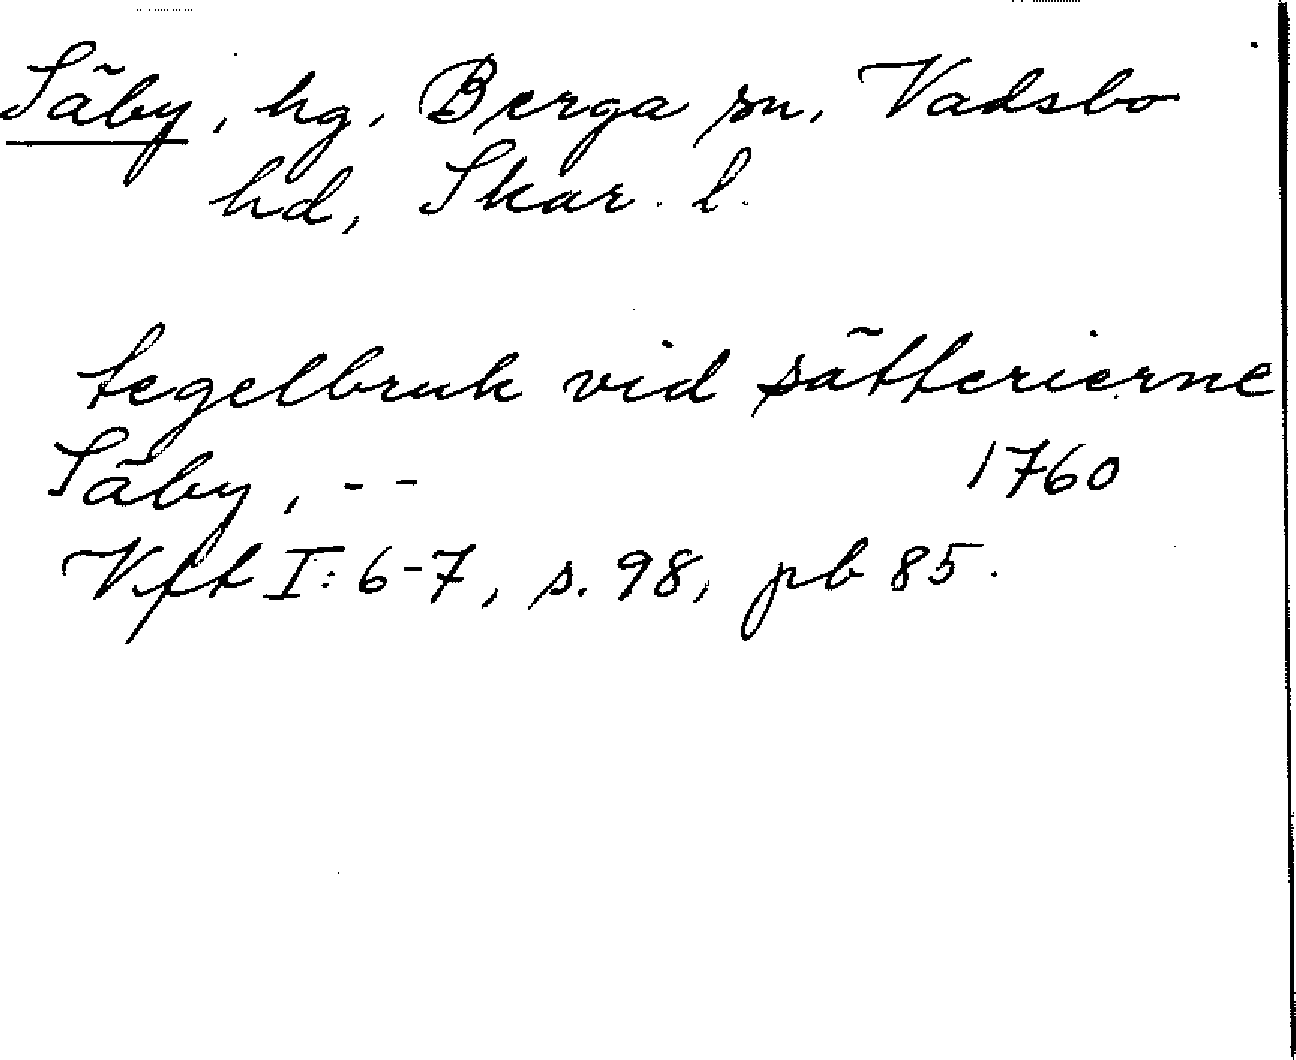 Säby, hg, Berga sn, Vadsbo
hd, Skar. l.
tegelbruk vid sätterierne
Säby, - - 1760
Vft I: 6-7, s. 98, pb 85.